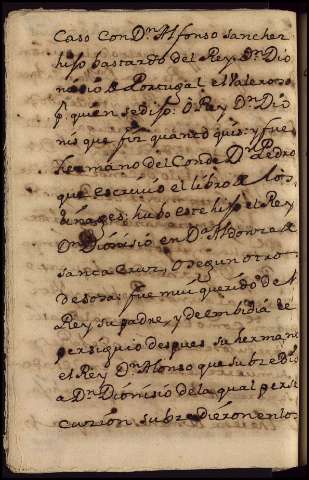 Caso Con Dn Alfonso sanchez
hijo bastardo del Rey Dn Dio
nisio de Portugal el Valeroso
pr quien se dijo: O Rey Dn Dio
nis que fiz quanto quis: y fue
hermano del Conde Dn Pedro
que escriuio el libro de los
linages: hubo este hijo el Rey
Dn Dionisio en Da Aldonza de
sancta Cruz, o segun otros
de sosa: fue mui querido del
Rey su padre, y de embidia le
persiguio despues su hermano
el Rey Dn Alonso que subcedio
a Dn Dionisio de la qual perse
cucion subcedieron en los